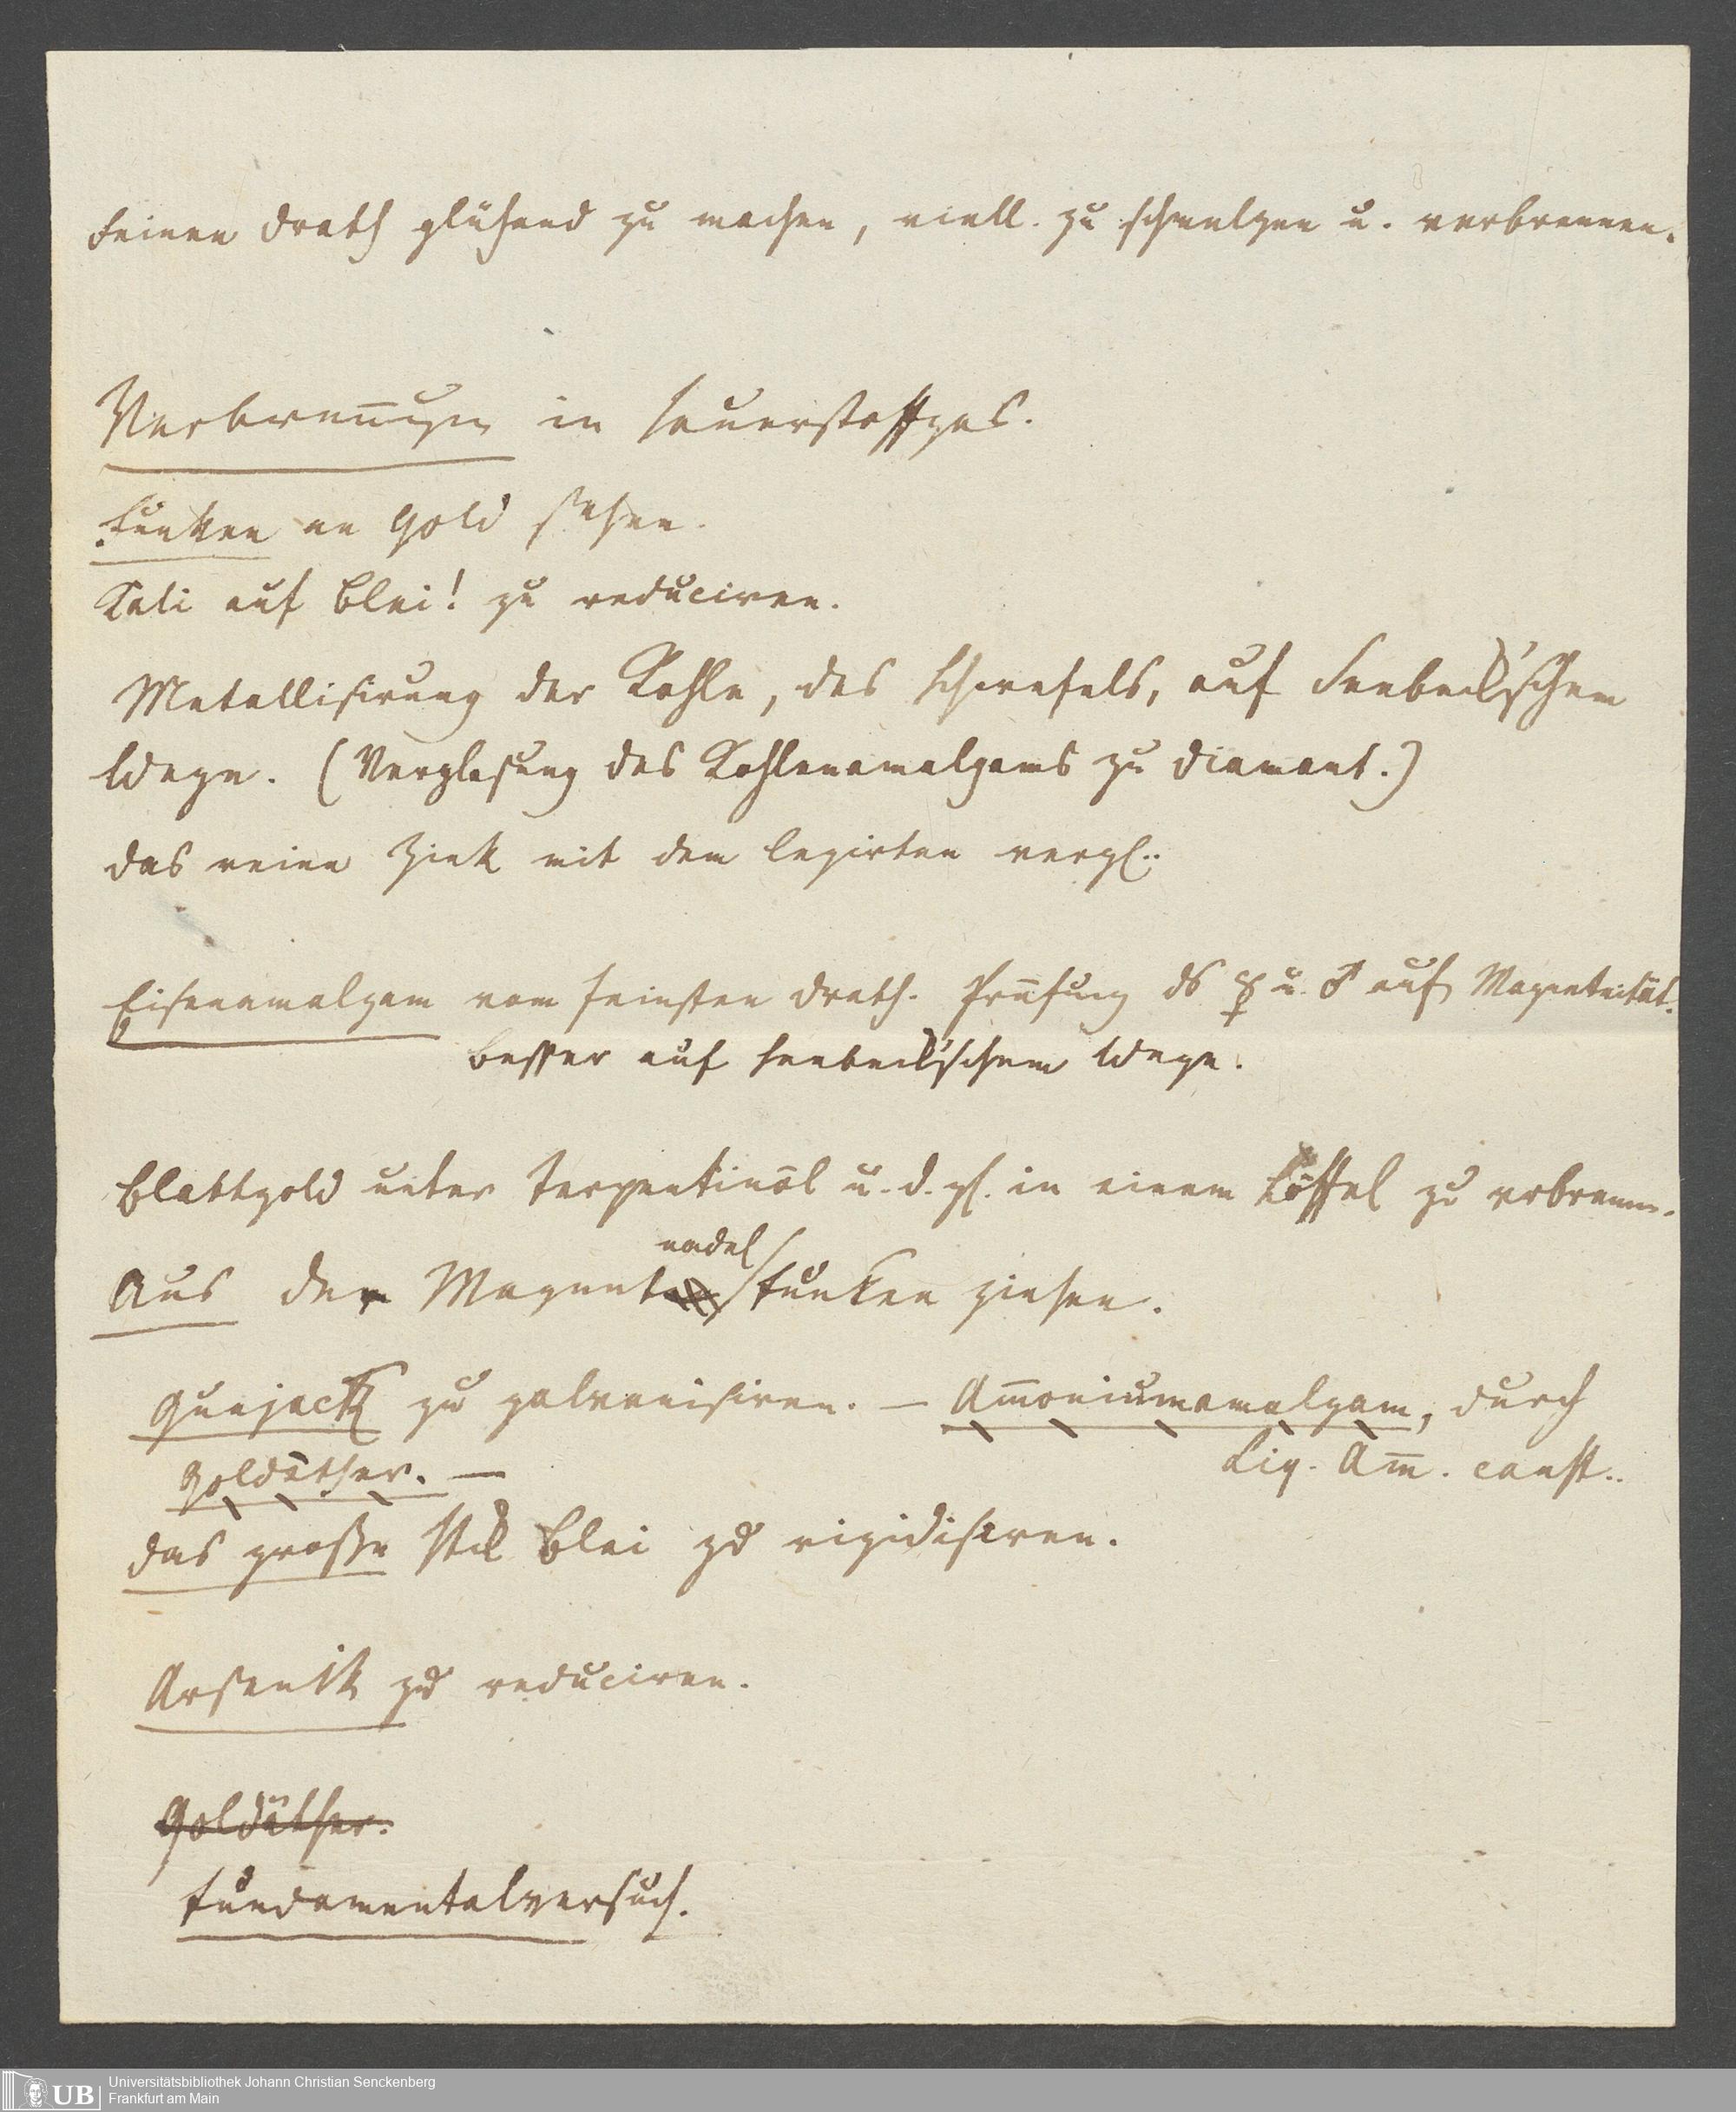 Feinen Drath glühend zu machen, viell. zu schmelzen u. verbrennen.
Verbrennungen in Sauerstoffgas.
Funken an Gold sehen.
Kali auf Blei! zu reduciren.
Metallisirung der Kohle, des Schwefels, auf Seebeck'schem
Wege. (Verglasung des Kohlenamalgams zu Diamant.)
Das reine Zink mit dem legirten vergl.
Eisenamalgam vom feinsten Drath. Prüfung ds ☿ u. ♂ auf Magnetcität.
Besser auf Seebeck'schem Wege.
Blattgold unter Terpentinöl u. d. gl. in einem Löffel zu vrbrennen.
nadel
Aus der Magnet Funken ziehen.
Guajack zu galvanisiren. — Am̅oniumamalgam, durch
Goldäther. — Liq. Am̅. caust.
Das große Stück Blei zu rigidisiren.
Arsenik zu reduciren.
Goldäther.
Fundamentalversuch.
UB
Universitätsbibliothek Johann Christian Senckenberg
Frankfurt am Main